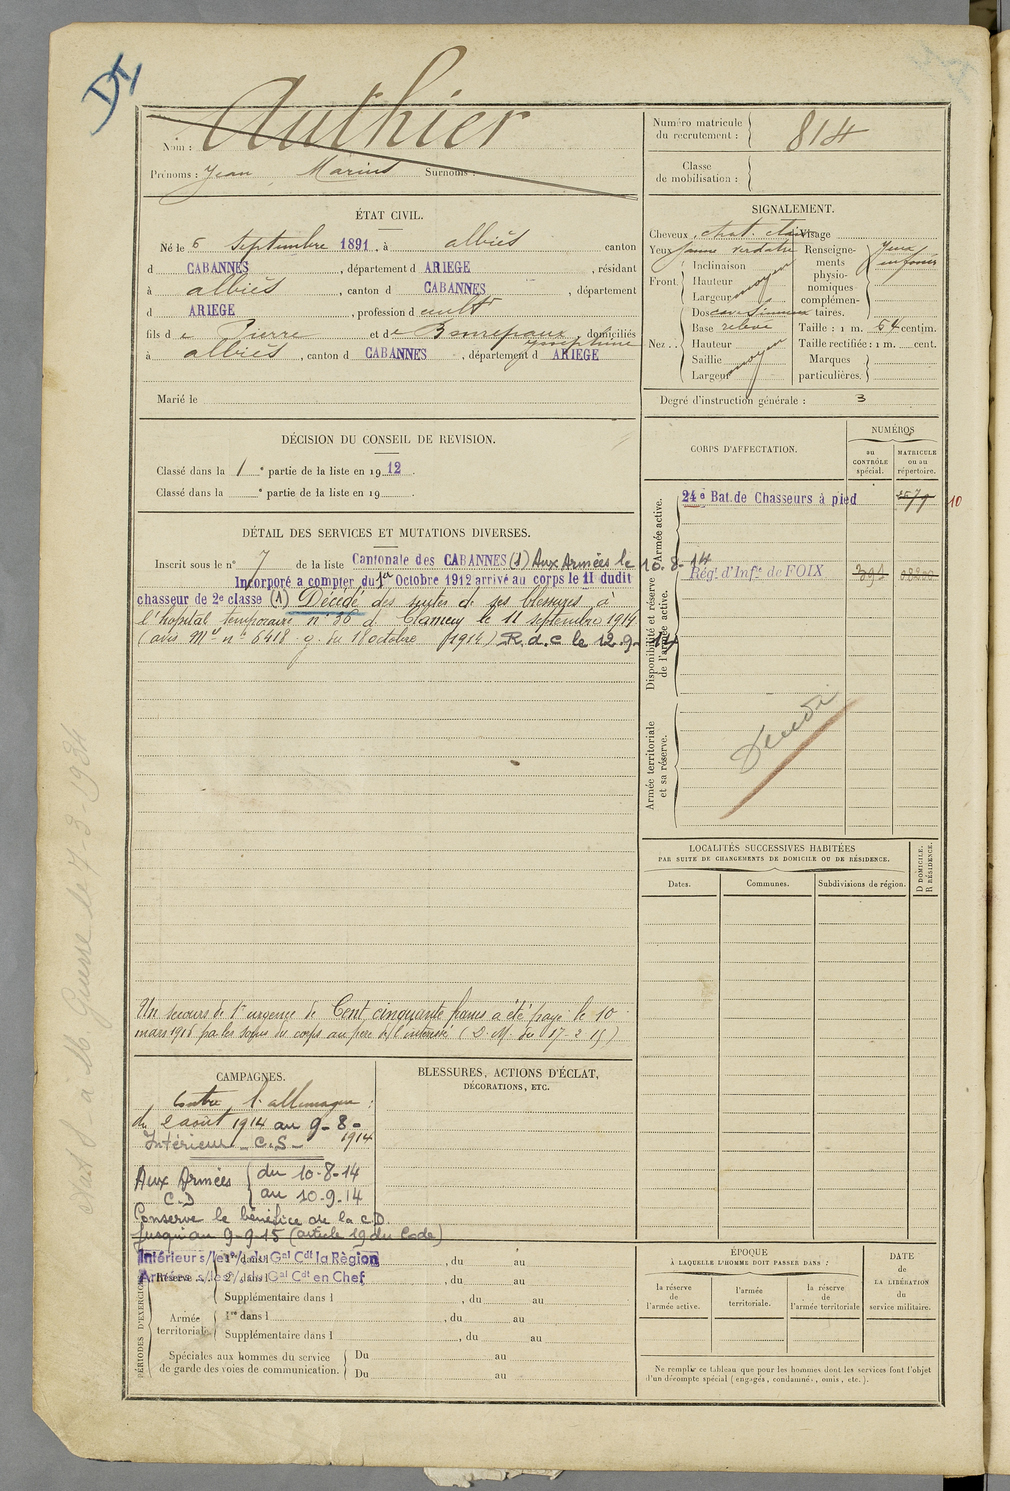 DI
Nom : Authier
Prénoms : Jean Marius Surnoms :
Numéro matricule du recrutement : 814
Classe de mobilisation :
ÉTAT CIVIL.
Né le 6 septembre 1891, à albiès canton
d CABANNES, département d ARIEGE, résidant
à albiès, canton d CABANNES, département
d ARIEGE, profession d cultr
fils d e Pierre et de Bonrepaux Joséphine, domiciliés
à albiès, canton d CABANNES, département d ARIEGE
Marié le
SIGNALEMENT.
Cheveux chat. clair Visage
Yeux jaune verdatre
Front. Inclinaison
Hauteur moyen
Largeur
Nez. Dos cave sinueux
Base relevé
Hauteur
Saillie moyen
Largeur
Renseignements physionomiques complémentaires. Yeux enfoncés
Taille : 1 m. 54 centim.
Taille rectifiée : 1 m. cent.
Marques particulières.
Degré d'instruction générale : 3
DÉCISION DU CONSEIL DE REVISION.
Classé dans la 1 e partie de la liste en 1912.
Classé dans la e partie de la liste en 19
DÉTAIL DES SERVICES ET MUTATIONS DIVERSES.
Inscrit sous le n° 7 de la liste Cantonale des CABANNES (1) Aux Armées le 10.8-14
Incorporé a compter du 1er Octobre 1912 arrivé au corps le 11 dudit
chasseur de 2e classe (A) Décédé des suites de ses blessures à
l'hopital temporaire n° 36 d Clamecy le 11 septembre 1914
(avis Mel n° 6418 g. du 18 octobre 1914) R.d.c le 12-9-14
Un secours de 1re urgence de Cent cinquante francs a été payé le 10
mars 1916 par les soins du corps au père de l'intéressé (D.M. du 17-2-15)
CORPS D'AFFECTATION.
NUMÉROS
au CONTRÔLE spécial.
MATRICULE ou au répertoire.
Armée active.
24e Bat. de Chasseurs à pied
10
Disponibilité et réserve de l'armée active.
Régt d'Inf.ie de FOIX
Armée territoriale et sa réserve.
LOCALITÉS SUCCESSIVES HABITÉES
PAR SUITE DE CHANGEMENTS DE DOMICILE OU DE RÉSIDENCE.
Dates. Communes. Subdivisions de région.
D DOMICILE. R RÉSIDENCE.
CAMPAGNES.
Contre l'allemagne :
du 2 août 1914 au 9-8-1914
Intérieur - C.S-
Aux Armées C.D du 10-8-14
au 10-9-14
Conserve le bénéfice de la C.D.
jusqu'au 9-9-15 (article 19 du Code)
Intérieur s/les o/ du Gal Cdt la Région
Armées s/les o/ du Gal Cdt en Chef
BLESSURES, ACTIONS D'ÉCLAT,
DÉCORATIONS, ETC.
PÉRIODES D'EXERCICES
Réserve. 1re dans l , du au
2e dans l , du au
Supplémentaire dans l , du au
Armée territoriale. 1re dans l , du au
Supplémentaire dans l , du au
Spéciales aux hommes du service de garde des voies de communication. Du au
Du au
ÉPOQUE
À LAQUELLE L'HOMME DOIT PASSER DANS :
la réserve de l'armée active.
l'armée territoriale.
la réserve de l'armée territoriale
DATE de LA LIBÉRATION du service militaire.
Ne remplir ce tableau que pour les hommes dont les services font l'objet
d'un décompte spécial (engagés, condamnés, omis, etc.).
à M Guerre le 7-3-1934